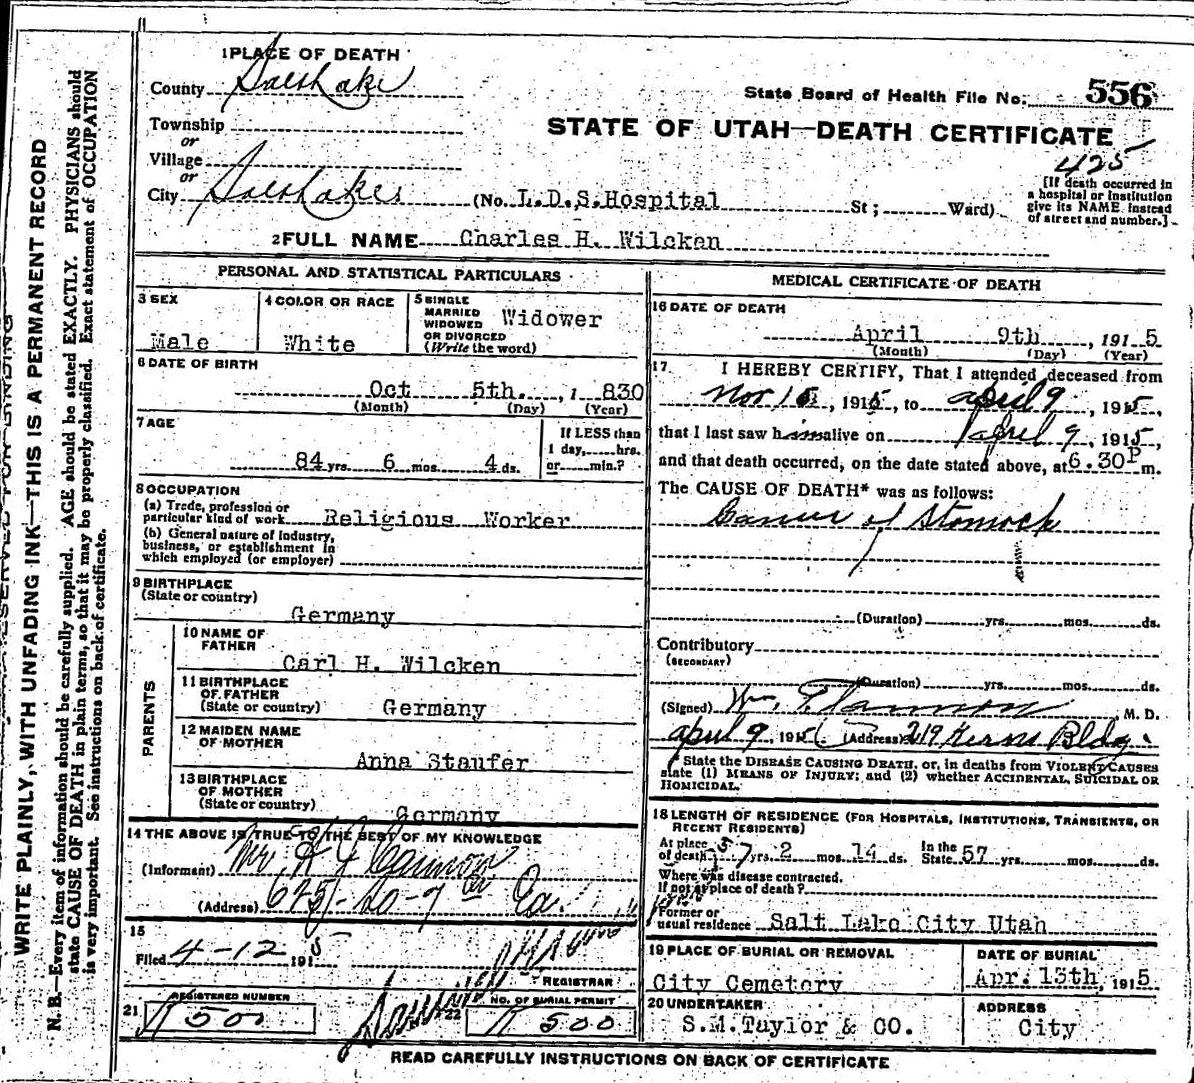 1 PLACE OF DEATH
County Salt Lake
State Board of Health File No. 556
Township
or
Village
or
City Salt Lake
STATE OF UTAH—DEATH CERTIFICATE
425
(No. L.D.S. Hospital St; Ward)
[If death occurred in
a hospital or institution
give its NAME instead
of street and number.]
2 FULL NAME Charles H. Wilcken
PERSONAL AND STATISTICAL PARTICULARS
3 SEX
Male
4 COLOR OR RACE
White
5 SINGLE
MARRIED
WIDOWED
OR DIVORCED
(Write the word)
Widower
6 DATE OF BIRTH
Oct 5th. , 1 830
(Month) (Day) (Year)
7 AGE
84 yrs. 6 mos. 4 ds.
If LESS than
1 day, hrs.
or min.?
8 OCCUPATION
(a) Trade, profession or
particular kind of work Religious Worker
(b) General nature of industry,
business, or establishment in
which employed (or employer)
9 BIRTHPLACE
(State or country)
Germany
PARENTS
10 NAME OF
FATHER
Carl H. Wilcken
11 BIRTHPLACE
OF FATHER
(State or country) Germany
12 MAIDEN NAME
OF MOTHER
Anna Staufer
13 BIRTHPLACE
OF MOTHER
(State or country)
Germany
14 THE ABOVE IS TRUE TO THE BEST OF MY KNOWLEDGE
(Informant) Cannon
(Address)
15
Filed 4-12 1915
REGISTRAR
21 REGISTERED NUMBER
500
22 NO. OF BURIAL PERMIT
500
MEDICAL CERTIFICATE OF DEATH
16 DATE OF DEATH
April 9th , 191 5
(Month) (Day) (Year)
17 I HEREBY CERTIFY, That I attended deceased from
Nov , 191 , to April 9 , 1915,
that I last saw him alive on April 9 , 1915,
and that death occurred, on the date stated above, at 6.30 P m.
The CAUSE OF DEATH* was as follows:
Cancer of Stomach
(Duration) yrs. mos. ds.
Contributory
(SECONDARY)
(Duration) yrs. mos. ds.
(Signed) Cannon , M. D.
April 9, 1915 (Address) 219 Kerns Bldg.
State the DISEASE CAUSING DEATH, or, in deaths from VIOLENT CAUSES
state (1) MEANS OF INJURY; and (2) whether ACCIDENTAL, SUICIDAL OR
HOMICIDAL.
18 LENGTH OF RESIDENCE (FOR HOSPITALS, INSTITUTIONS, TRANSIENTS, OR
RECENT RESIDENTS)
At place
of death 57 yrs. 2 mos. 14 ds.
In the
State 57 yrs. mos. ds.
Where was disease contracted.
If not at place of death?
Former or
usual residence Salt Lake City Utah
19 PLACE OF BURIAL OR REMOVAL
City Cemetery
DATE OF BURIAL
Apr. 13th, 1915
20 UNDERTAKER
S.M.Taylor & CO.
ADDRESS
City
READ CAREFULLY INSTRUCTIONS ON BACK OF CERTIFICATE
WRITE PLAINLY, WITH UNFADING INK—THIS IS A PERMANENT RECORD
N. B.—Every item of information should be carefully supplied. AGE should be stated EXACTLY. PHYSICIANS should
state CAUSE OF DEATH in plain terms, so that it may be properly classified. Exact statement of OCCUPATION
is very important. See instructions on back of certificate.